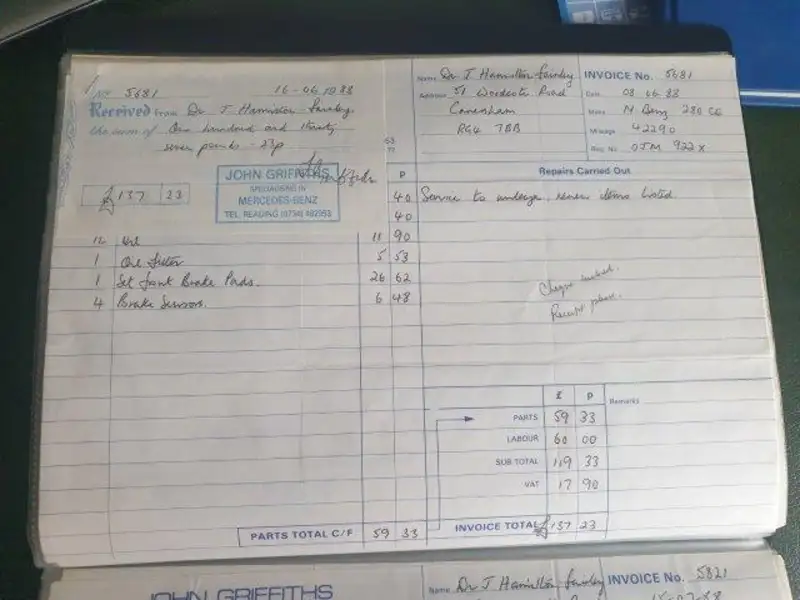 No 5681 16-06 1988
Received from Dr J Hamilton Fairley
the sum of One hundred and thirty
seven pounds - 23p
£137 23
JOHN GRIFFITHS
SPECIALISING IN
MERCEDES-BENZ
TEL. READING (0734)
P
40
40
12 11 90
1 Oil Filter 5 53
1 Set front Brake Pads. 26 62
4 Brake Sensors. 6 48
PARTS TOTAL C/F 59 33
Name Dr J Hamilton Fairley INVOICE No. 5681
Address 51 Woodcote Road Date 08 06 88
Caversham Make M Benz 280 CE
RG4 7BB Mileage 42290
Reg. No. OJM 922X
Repairs Carried Out
Service to mileage, listed
Cheque enclosed.
Receipt please.
£ P Remarks
PARTS 59 33
LABOUR 60 00
SUB TOTAL 119 33
VAT 17 90
INVOICE TOTAL £137 23
JOHN GRIFFITHS
Name Dr J Hamilton Fairley INVOICE No. 5821